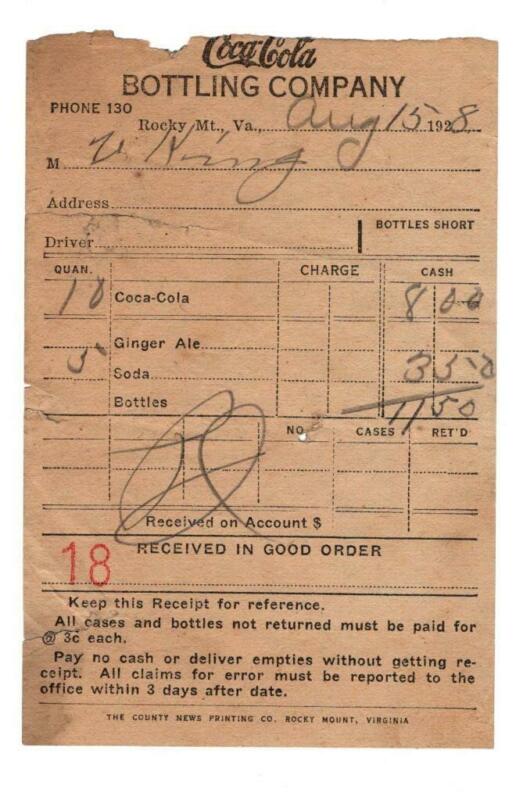 Coca-Cola
BOTTLING COMPANY
PHONE 130
Rocky Mt., Va., Aug 15 1928
M V. King
Address
Driver
BOTTLES SHORT
QUAN. CHARGE CASH
10 Coca-Cola 8 00
Ginger Ale
5 Soda 3 50
Bottles 11 50
NO. CASES RET'D
Received on Account $
18 RECEIVED IN GOOD ORDER
Keep this Receipt for reference.
All cases and bottles not returned must be paid for
@ 3c each.
Pay no cash or deliver empties without getting re-
ceipt. All claims for error must be reported to the
office within 3 days after date.
THE COUNTY NEWS PRINTING CO. ROCKY MOUNT, VIRGINIA